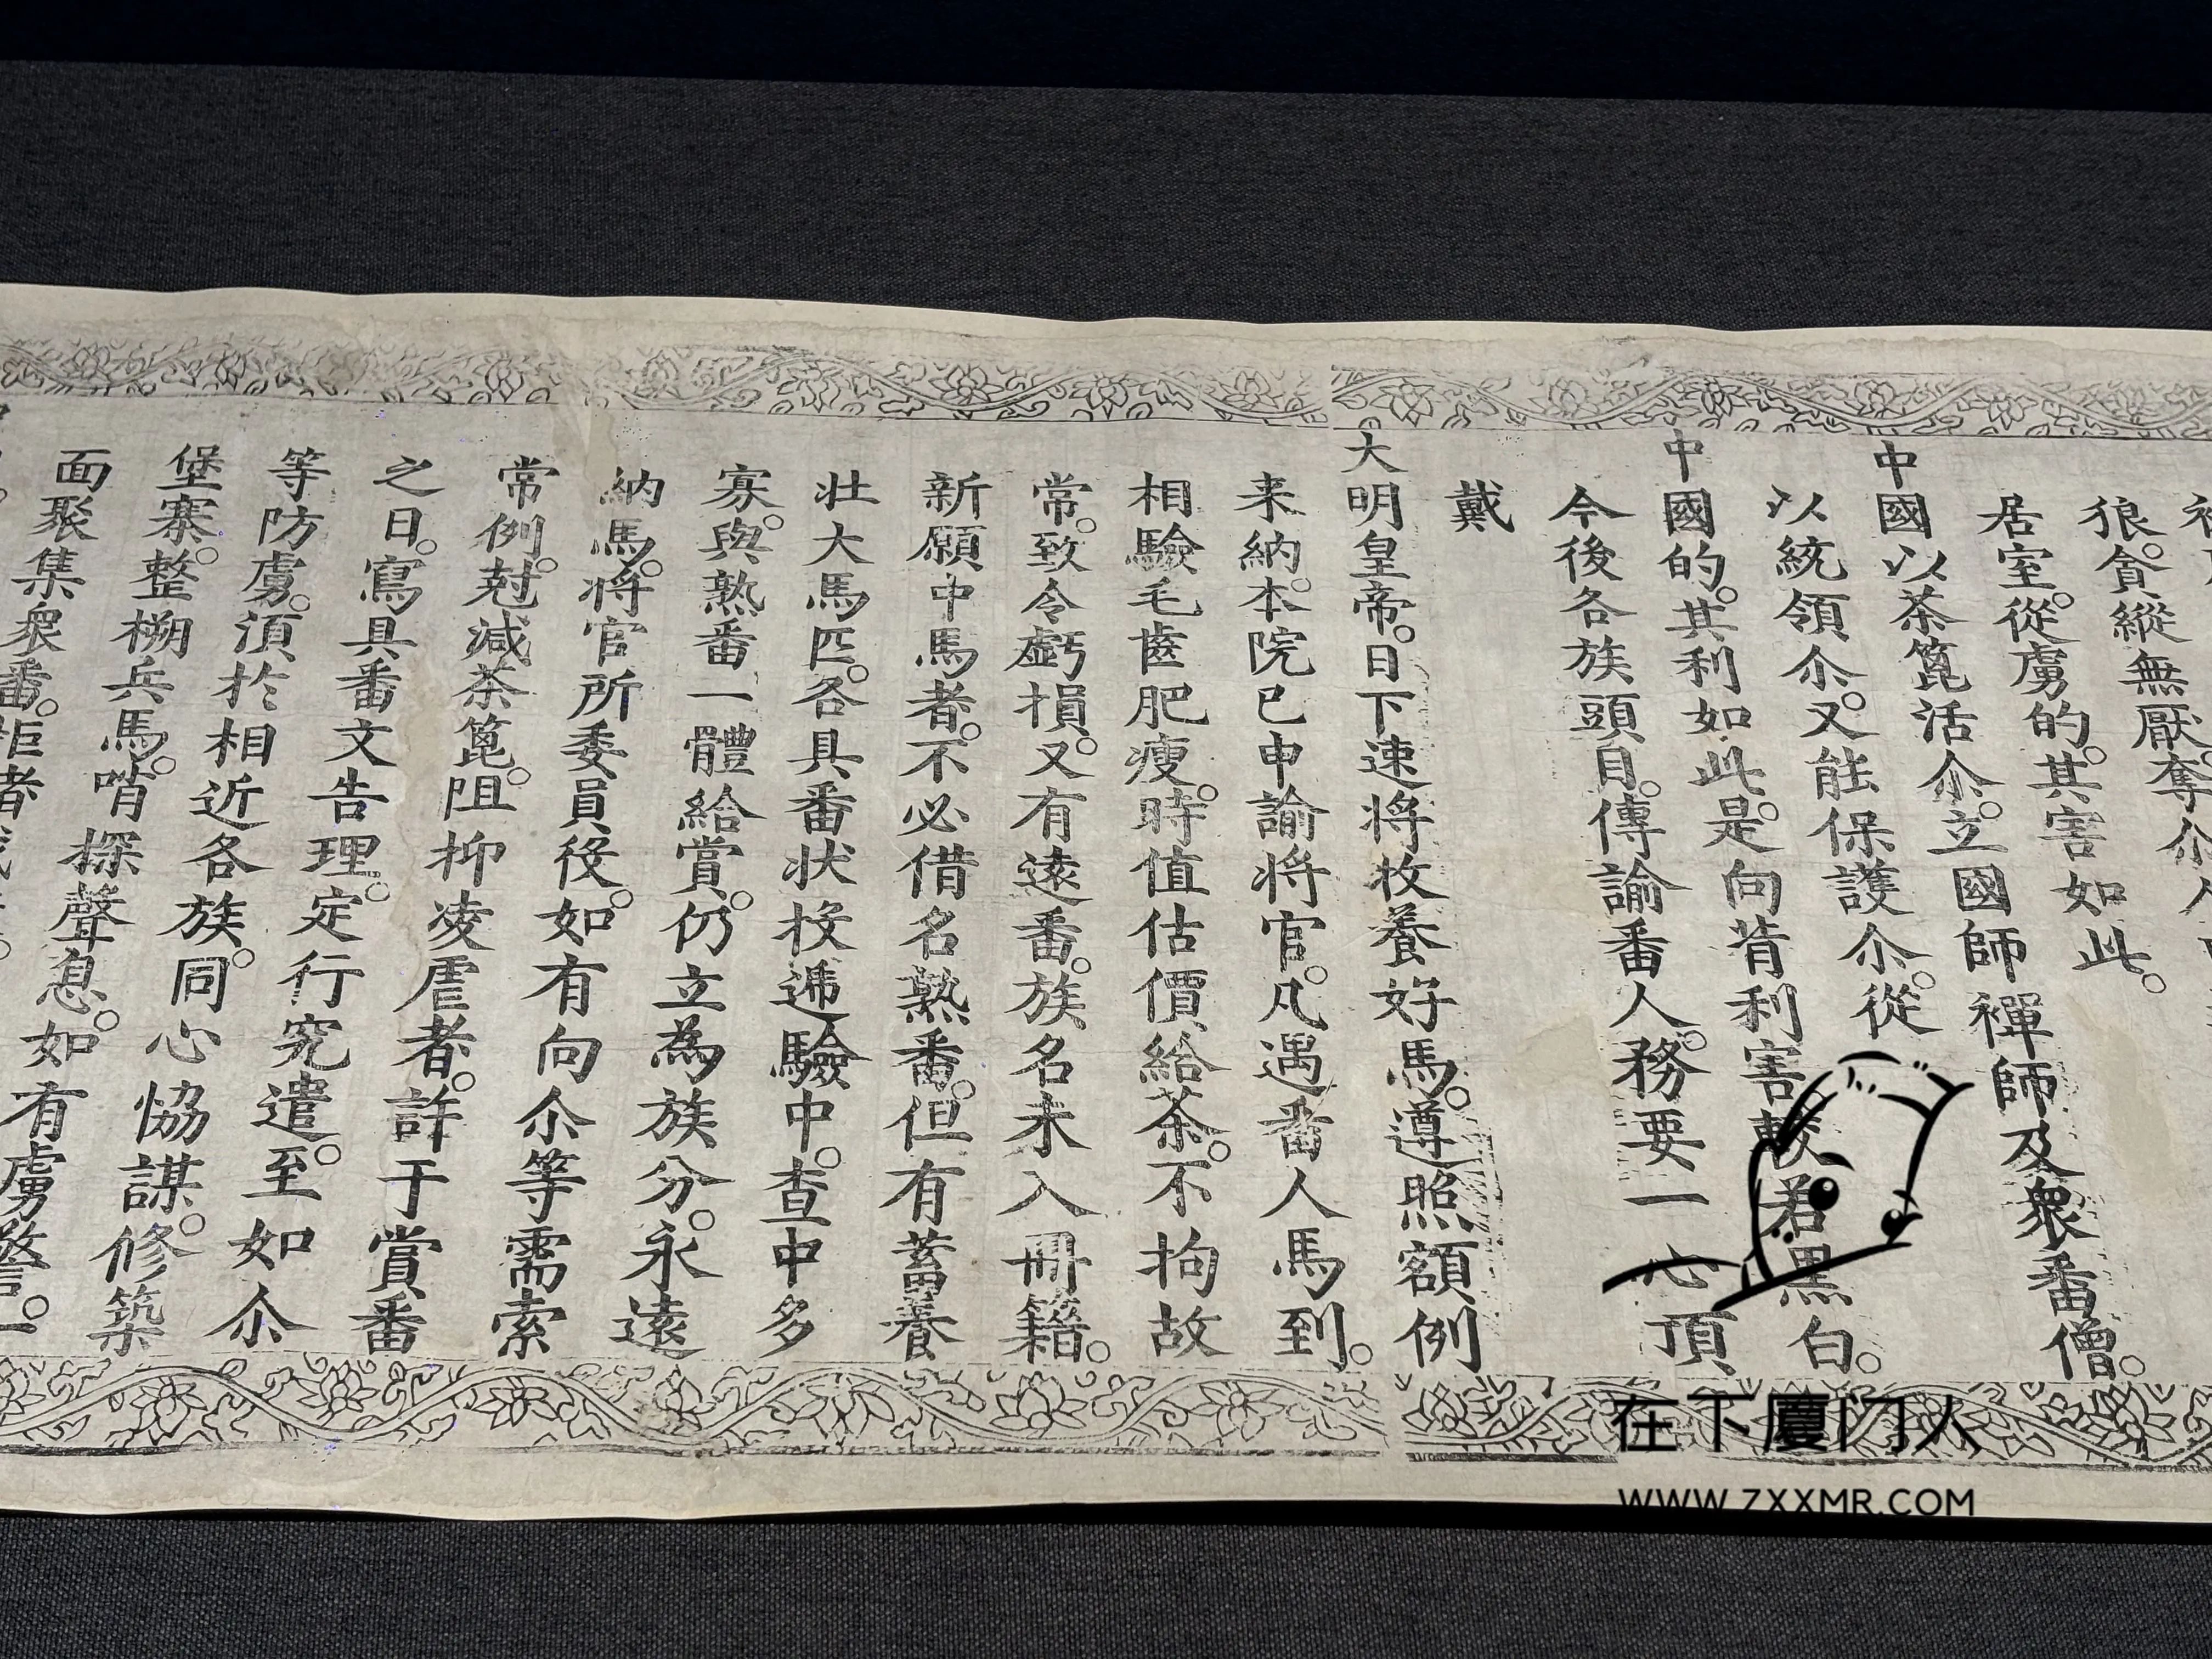 狼。貪縱無厭。奪尒
居室。從虜的。其害如此。
中國以茶篦活尒。立國師禪師及衆番僧。
以統領尒。又能保護尒。從
中國的。其利如此。是向背利害較若黑白。
今後各族頭目。傳諭番人。務要一心頂
戴
大明皇帝。日下速將牧養好馬。遵照額例
来納。本院已申諭將官。凡遇番人馬到。
相驗毛齒肥瘦。時值估價給茶。不拘故
常。致令虧損。又有遠番。族名未入冊籍。
新願中馬者。不必借名熟番。但有蓄養
壮大馬匹。各具番状投逓驗中。查中多
寡。與熟番一體給賞。仍立為族分。永遠
納馬。將官所委員役。如有向尒等需索
常例。尅減茶篦。阻抑凌虐者。許于賞番
之日。寫具番文告理。定行究遣。至如尒
等防虜。湏於相近各族。同心恊謀。修築
堡寨。整搠兵馬。哨探聲息。如有虜警。一
面聚集衆番。拒者
在下厦门人
WWW.ZXXMR.COM